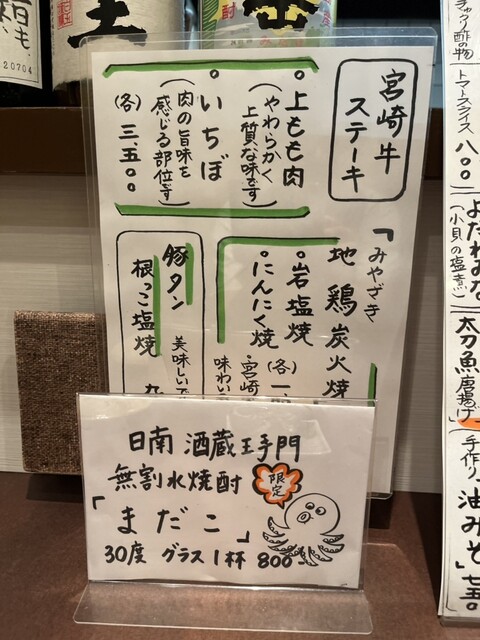 宮崎牛
ステーキ
上もも肉
(やわらかく
上質な味です)
いちぼ
(肉の旨味を
感じる部位です)
(各) 三、五〇〇
「みやざき
地鶏炭火焼
岩塩焼
にんにく焼
(各) 一、
宮崎
味わい
豚タン
根っこ塩焼
美味しいで
九
日南 酒蔵王手門
無割水焼酎
限定
「まだこ」
30度 グラス1杯 800-
チャンク酢の物
トマトスライス 八〇〇
よだれみな
(小貝の塩煮)
太刀魚
唐揚げ
手作り
油みそ 七五〇
20704